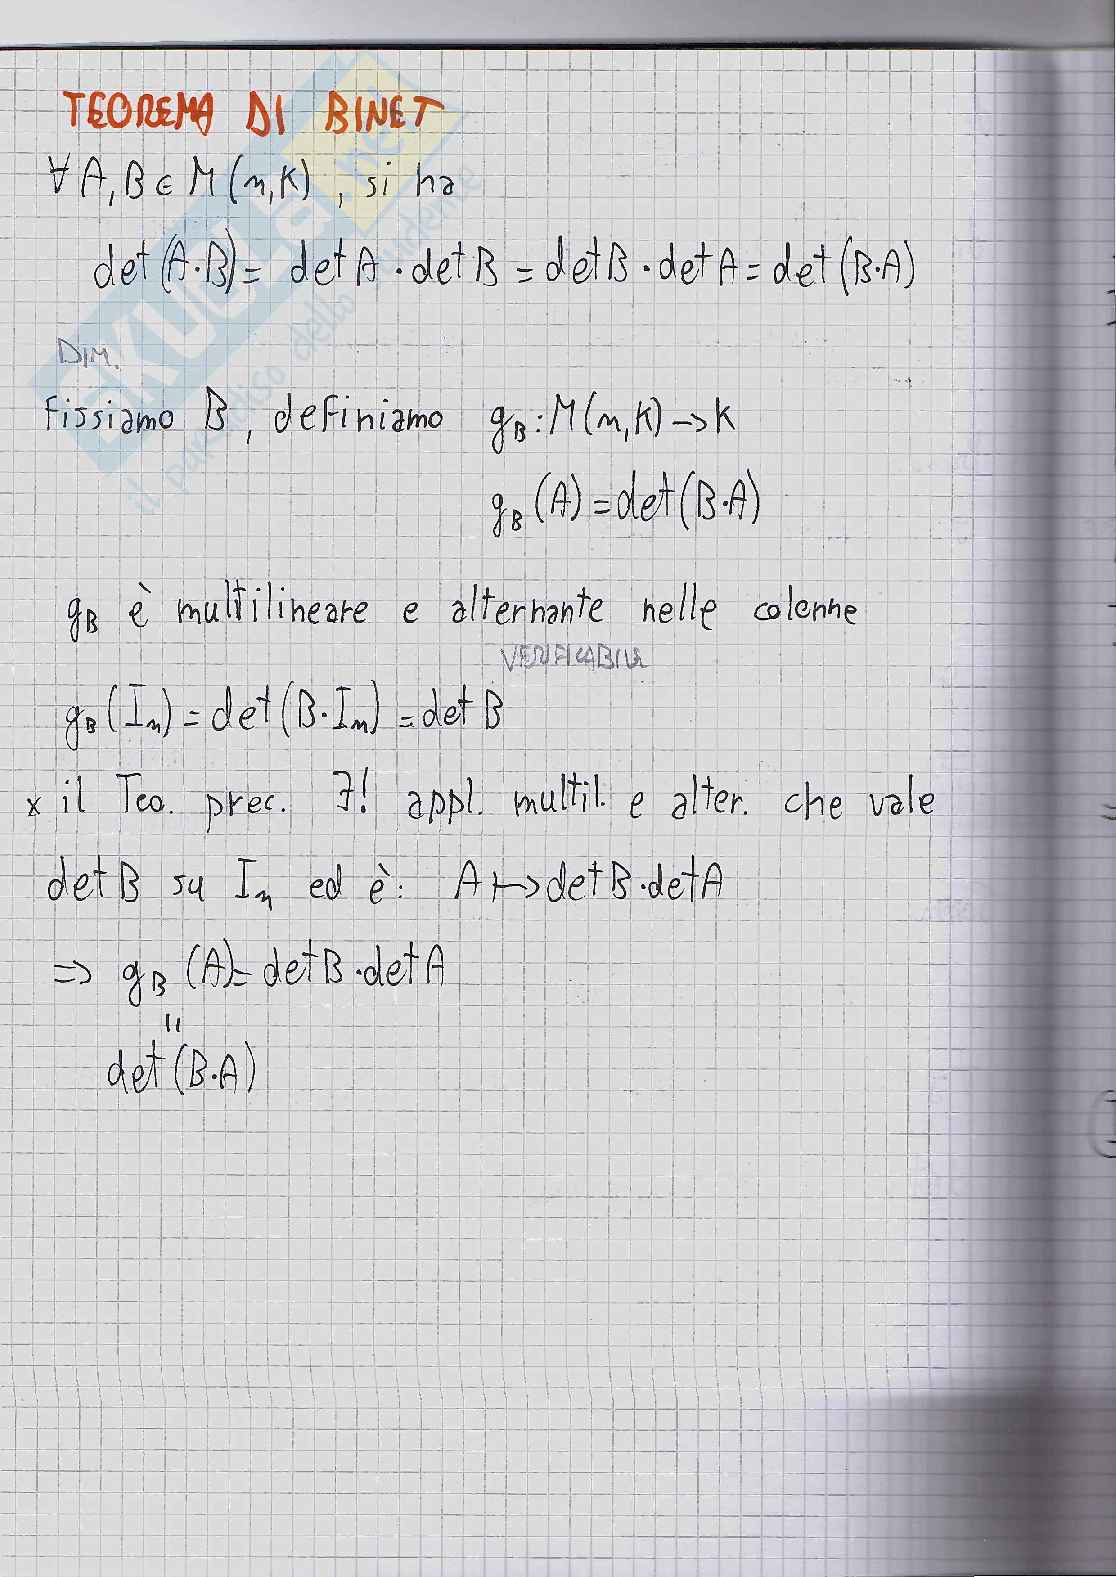 TEOREMA DI BINET
∀ A, B ∈ M(n,K), si ha
det(A·B) = det A · det B = det B · det A = det(B·A)
DIM.
Fissiamo B, definiamo g_B : M(n,K) → K
g_B(A) = det(B·A)
g_B è multilineare e alternante nelle colonne
VERIFICABILE
g_B(I_n) = det(B·I_n) = det B
x il Teo. prec. ∃! appl. multil. e alter. che vale
det B su I_n ed è: A ↦ det B · det A
⇒ g_B(A) = det B · det A
=
det(B·A)
SKUOLA.net
il paradiso dello studente